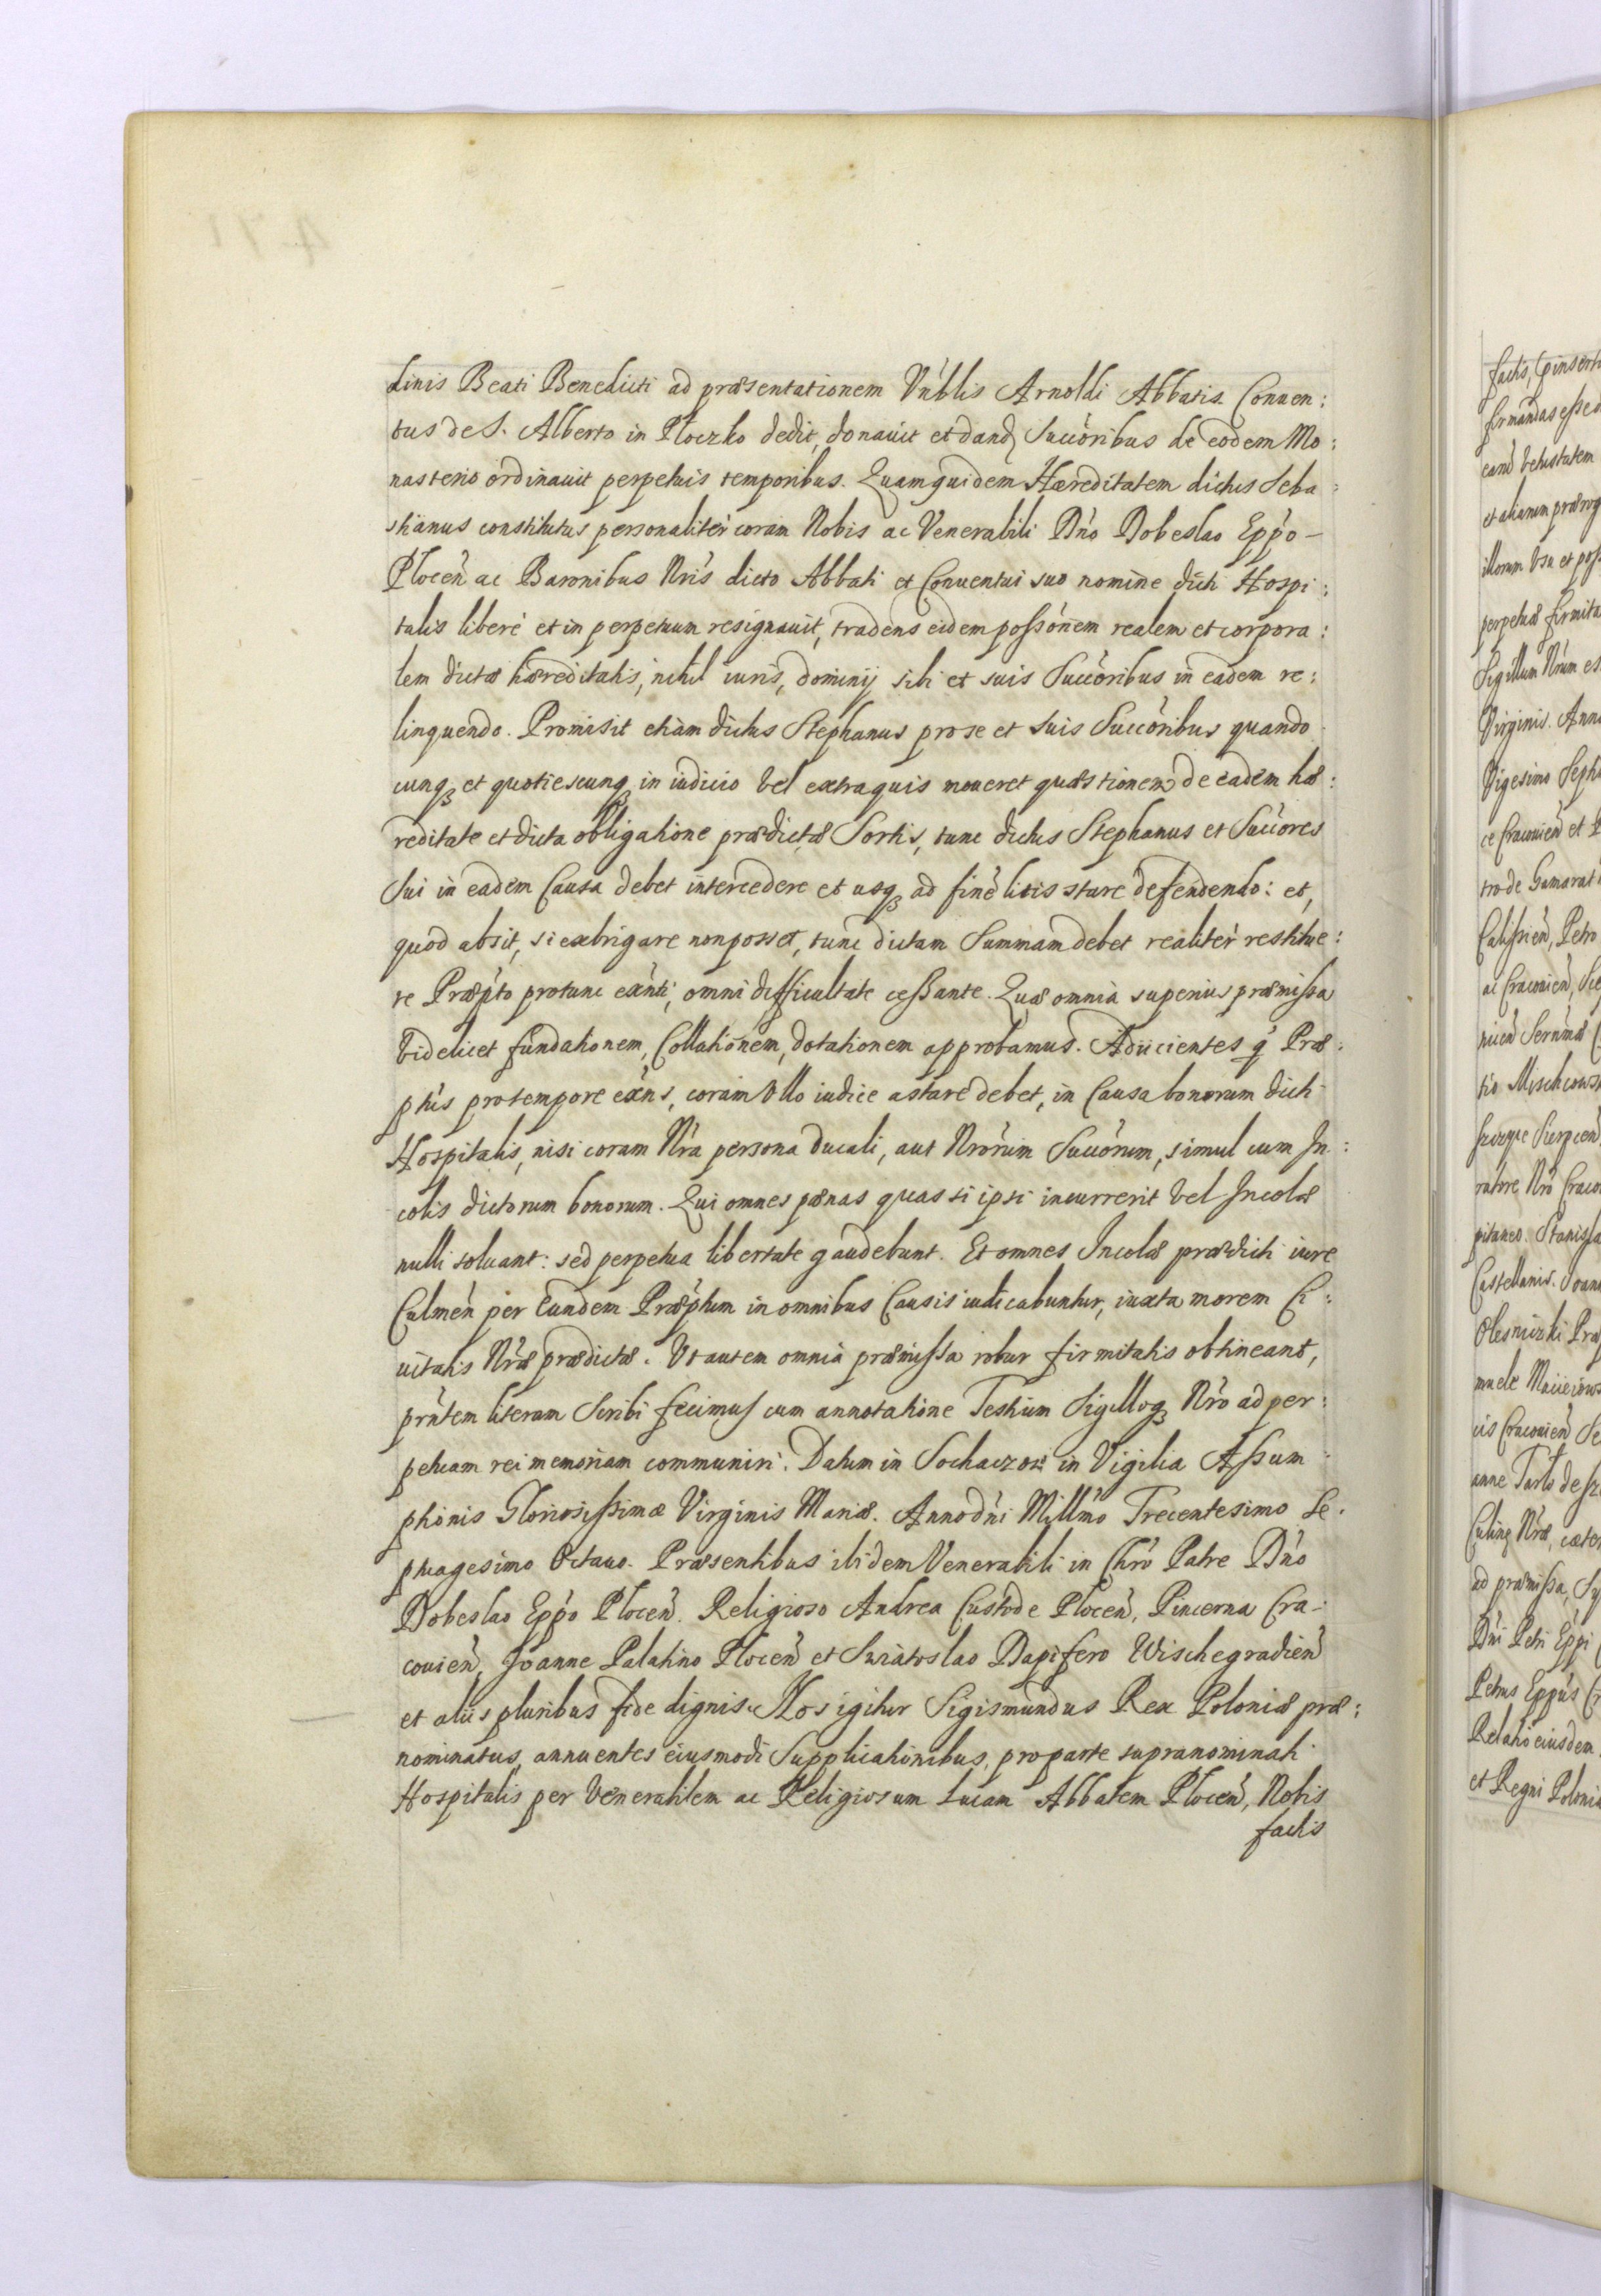 dinis Beati Benedicti ad præsentationem Vn̄blis Arnoldi Abbatis Conuen:
tus de S. Alberto in Ploczko dedit, donauit et dand Succōribus de eodem Mo:
nasterio ordinauit perpetuis temporibus. Quam quidem Hæreditatem dictus Seba:
stianus constitutus personaliter coram Nobis ac Venerabili Dn̄o Dobeslao Epp̄o –
Plocen̄ ac Baronibus Nrīs dicto Abbati et Conuentui suo nomine dicti Hospi:
talis liberè et in perpetuum resignauit, tradens eidem possōnem realem et corpora:
lem dictæ hæreditatis, nihil iuris, dominij sibi et suis Succōribus in eadem re:
linquendo. Promisit etiam dictus Stephanus pro se et suis Succōribus quando
cunqꝫ et quotiescunqꝫ in iudicio vel extra quis moueret quæstionem de eadem hæ:
reditate et dicta obligatione prædictæ Sortis, tunc dictus Stephanus et Succōres
Sui in eadem Causa debet intercedere et usqꝫ ad finē litis stare defendendo: et,
quod absit, si exbrigare non posset, tunc dictam Summam debet realiter restitue:
re Præp̄to pro tunc exn̄ti, omni difficultate cessante. Quæ omnia superius præmissa
videlicet fundationem, Collationem, dotationem approbamus. Adiicientes q̄ Præ:
p̄tus pro tempore exn̄s, coram Vllo iudice astare debet, in Causa bonorum dicti
Hospitalis, nisi coram Nrā persona ducali, aut Nrōrum Succōrum, simul cum In:
colis dictorum bonorum. Qui omnes pænas quas si ipsi incurrerit vel Incolæ
nulli soluant: sed perpetua libertate gaudebunt. Et omnes Incolæ prædicti iure
Culmen̄ per Eundem Præp̄tum in omnibus Causis iudicabuntur, iuxta morem Ci:
uitatis Nrǣ prædictæ. Vt autem omnia præmissa robur firmitatis obtineant,
prn̄tem literam Scribi fecimus cum annotatione Testium Sigilloqꝫ Nrō ad per:
petuam rei memoriam communiri. Datum in Sochaczow in Vigilia Assum:
ptionis Gloriosissimæ Virginis Mariæ. Anno dn̄i Millm̄o Trecentesimo Se:
ptuagesimo Octauo. Præsentibus ibidem Venerabili in Chrō Patre Dn̄o
Dobeslao Epp̄o Plocen̄. Religioso Andrea Custode Plocen̄, Pincerna Cra-
couien̄, Joanne Palatino Plocen̄ et Swiatoslao Dapifero Wischegradien̄
et aliis pluribus fide dignis. Nos igitur Sigismundus Rex Poloniæ præ:
nominatus, annuentes eiusmodi Supplicationibus, pro parte supranominati
Hospitalis per Venerabilem ac Religiosum Lucam Abbatem Plocen̄, Nobis
factis
factis,
firmandas esse
eand vetustatem
et aliarum
illorum Vsu et
perpetuæ
Sigillum Nrūm
Virginis. Anno
Vigesimo
ce Cracouien̄ et
tro de Gamorat
Calissien̄, Petro
ac Cracouien̄,
Castellanis.
Olesnizki
cis Cracouien̄
ad præmissa,
Dn̄i Petri Epp̄i
Petrus Epp̄us
Relatio eiusdem
et Regni Poloniæ